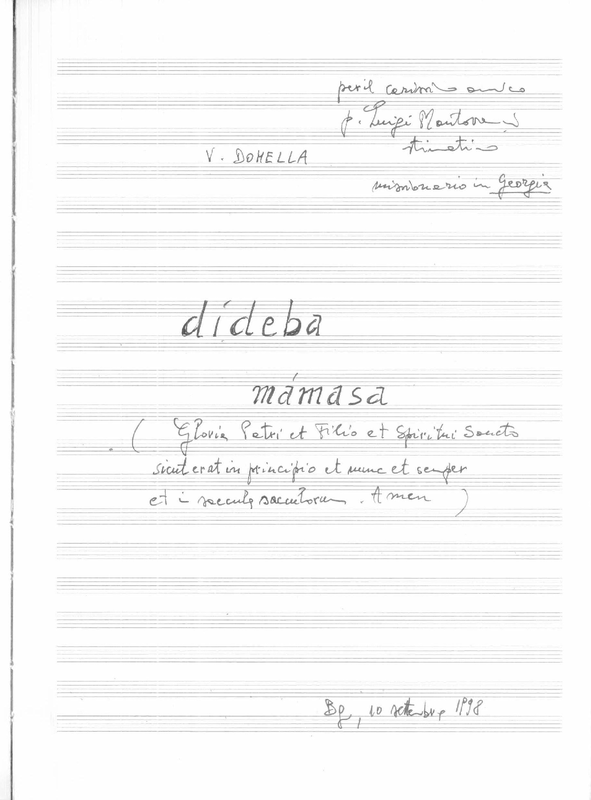 per il carissimo amico
p. Luigi Mantovani
stimatino
V. DONELLA
missionario in Georgia
dídeba
mámasa
( Gloria Patri et Filio et Spiritui Sancto
sicut erat in principio et nunc et semper
et in saecula saeculorum. Amen )
Bg, 10 settembre 1998